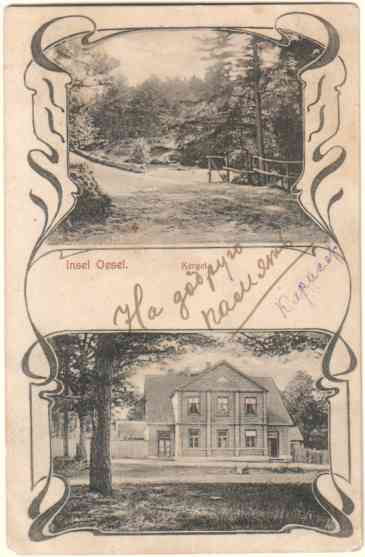 Insel Oesel. Kergel.
На добрую
память